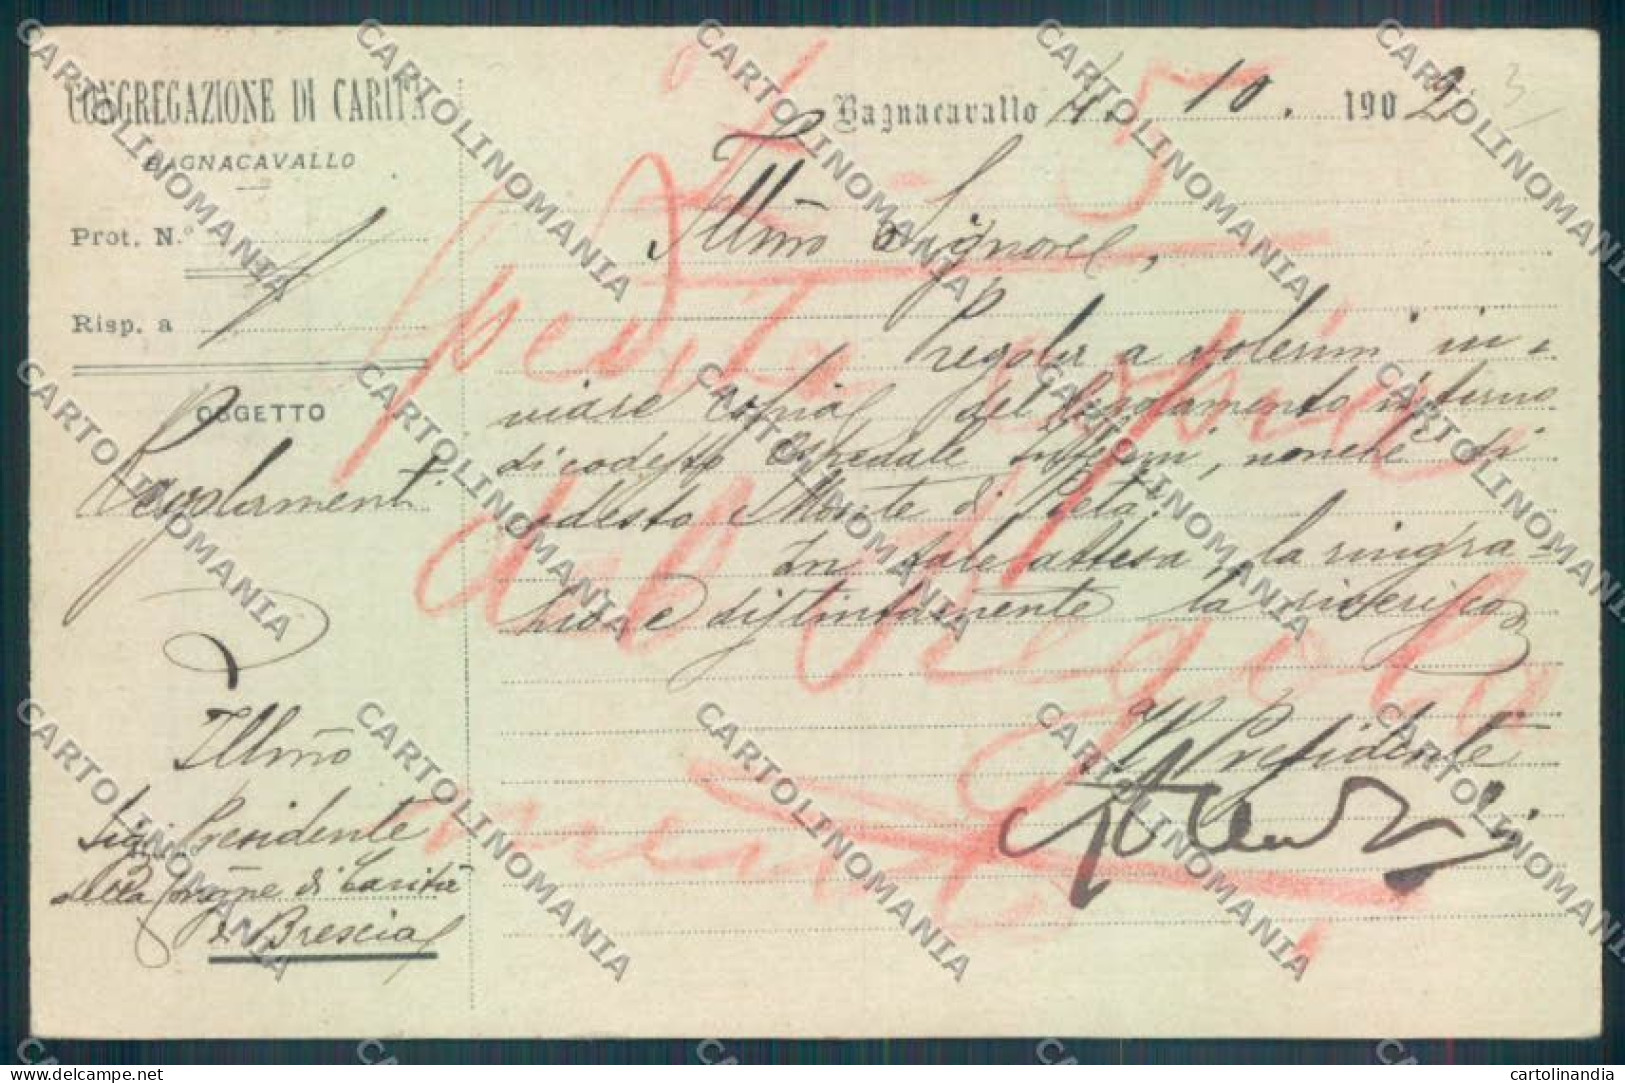 CONGREGAZIONE DI CARITÀ
BAGNACAVALLO
Prot. N.º
Risp. a
OGGETTO
Regolamenti
Illmo
Sigr Presidente
della Congne di Carità
di Brescia
Bagnacavallo 4. 10. 1902
Illmo Signore,
Pregola a volermi in-
viare copia del Regolamento interno
di codesto Ospedale Infermi, nonchè di
codesto Monte di Pietà.
In tale attesa la ringra-
zio e distintamente la riverisco
Il Presidente
5
Spedita copia
del Regola
mento
CARTOLINOMANIA
cartolinandia
www.delcampe.net